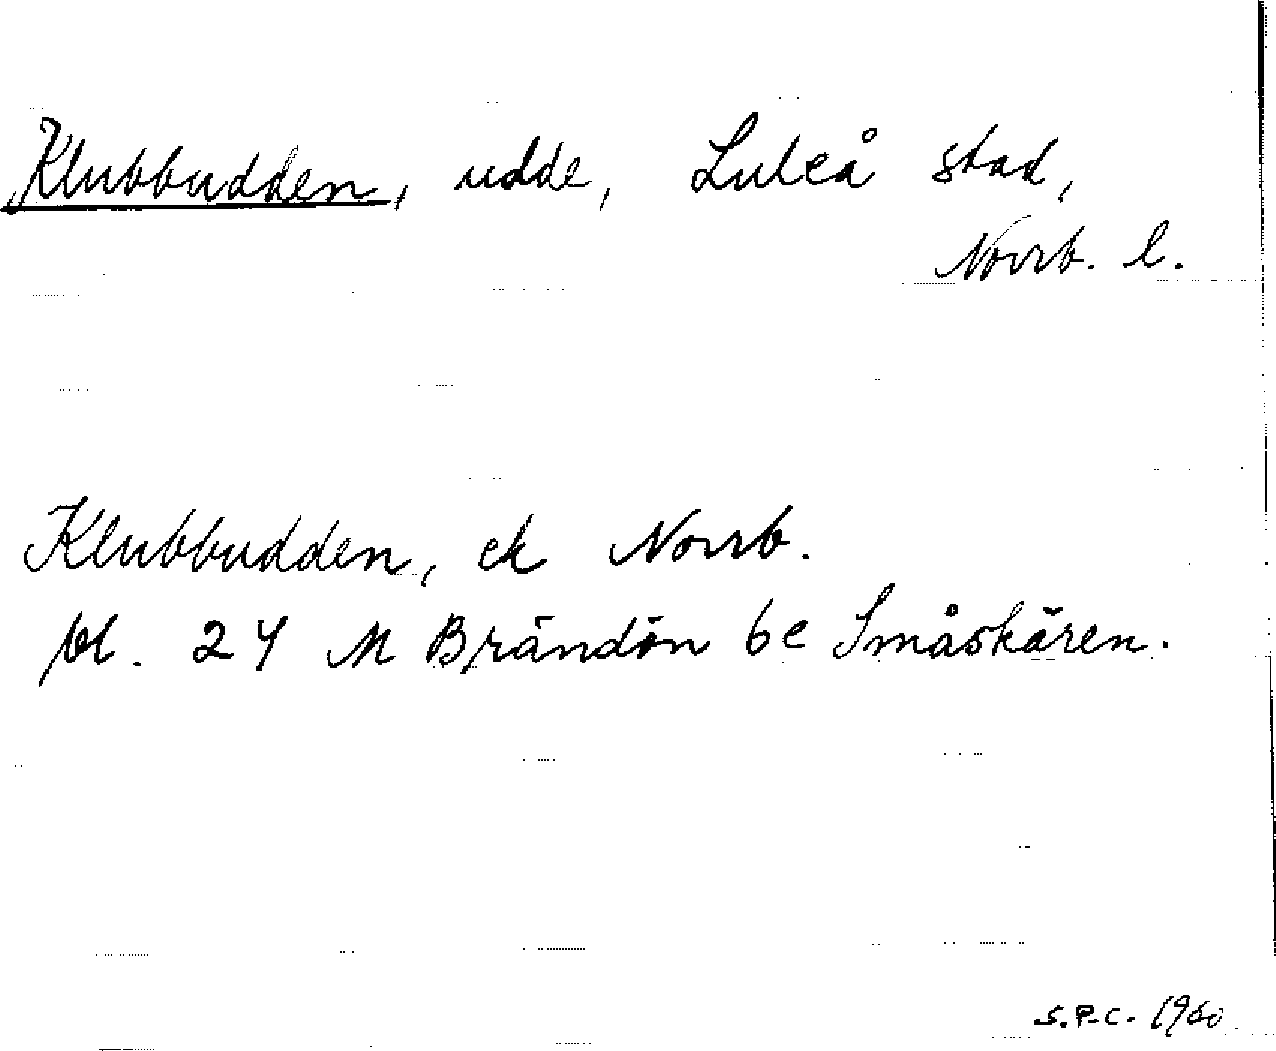 Klubbudden, udde, Luleå stad,
Norrb. l.
Klubbudden, ek Norrb.
bl. 24 M Brändön 6c Småskären.
S.P.C. 1960